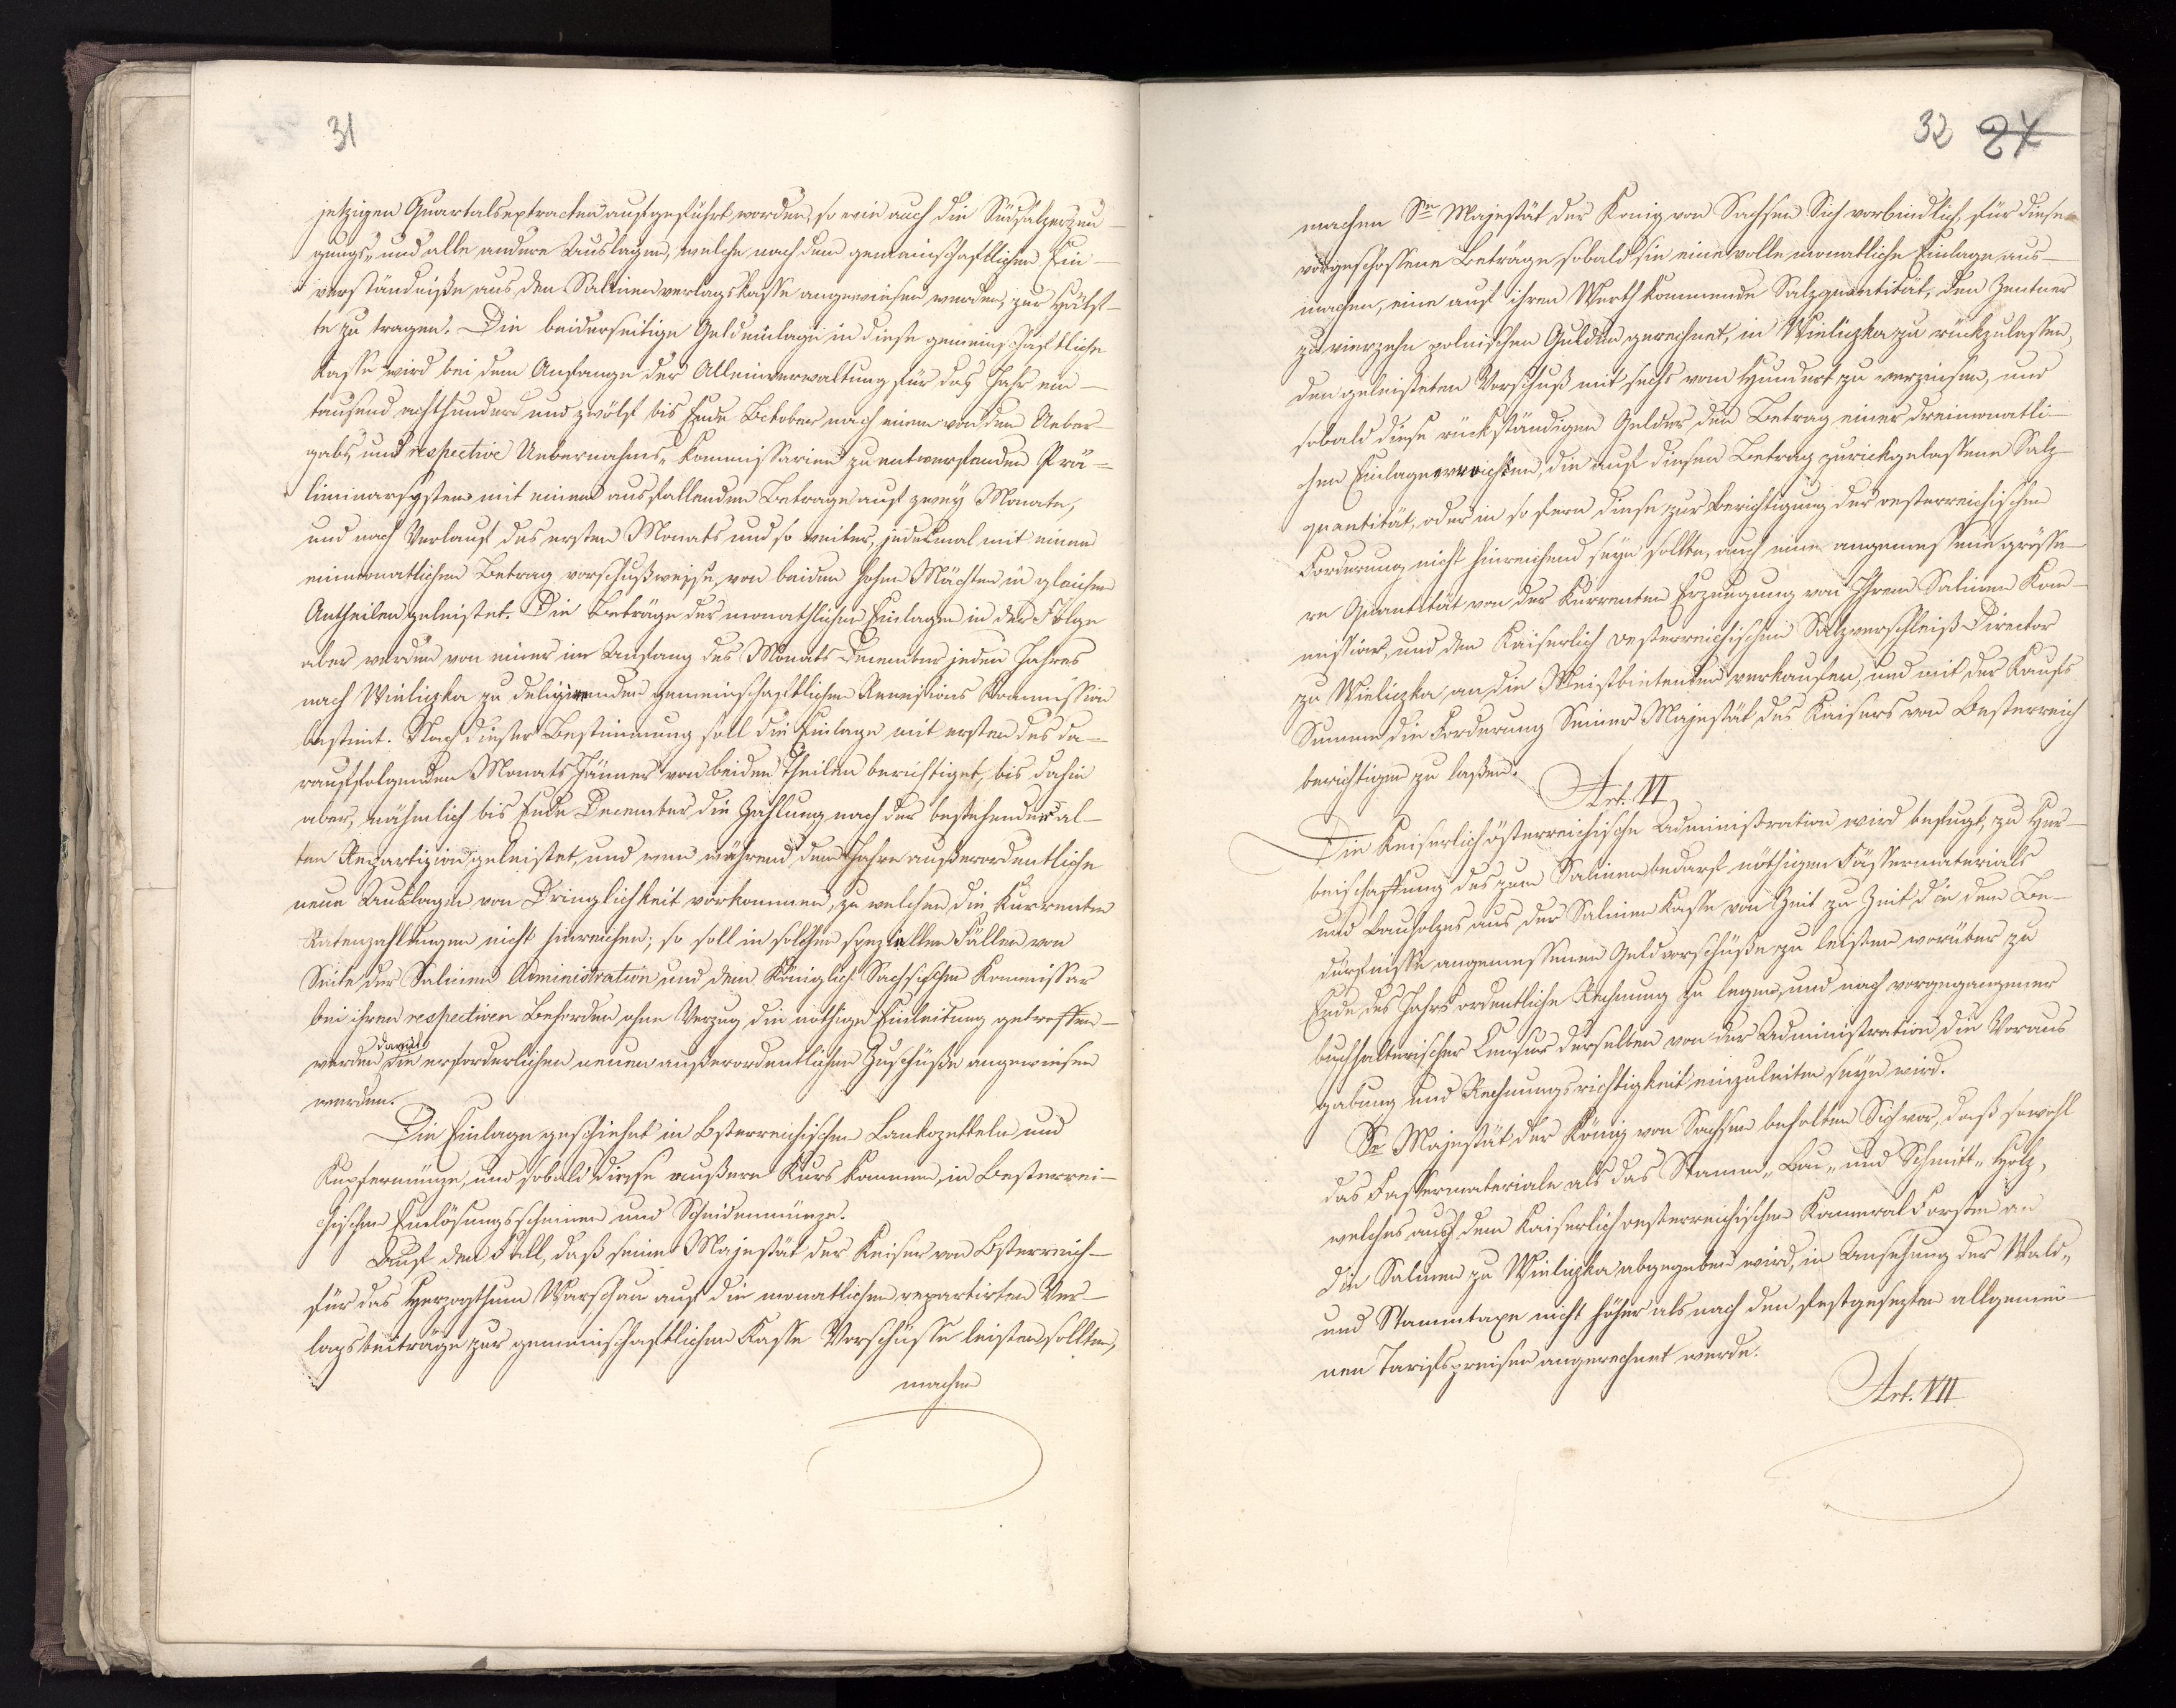 31
jetzigen Quartalsextracten aufgeführt worden, so wie auch die Südsalzerzeu-
gungs- und alle andere Auslagen, welche nach dem gemeinschaftlichen Ein-
verständniße aus den Salinenverlagskasse angewiesen werden, zur Hälf-
te zu tragen. Die beiderseitige Geldeinlage in diese gemeinschaftliche
Kasse wird bei dem Anfange der Alleinverwaltung für das Jahr ein-
tausend achthundert und zwölf bis Ende October nach einem von den Ueber-
gabs- und respective Uebernahms-Kommissarien zu entwerfenden Prä-
liminarsystem mit einem ausfallenden Betrage auf zwey Monate,
und nach Verlauf des ersten Monats und so weiter, jedesmal mit einem
einmonatlichen Betrag vorschußweise, von beiden hohen Mächten in gleichen
Antheilen geleistet. Die Beträge der monathlichen Einlagen in der Folge
aber werden von einer im Anfang des Monats December jeden Jahres
nach Wieliczka zu deligirenden gemeinschaftlichen Revisions Kommission
bestimt. Nach dieser Bestimmung soll die Einlage mit ersten des da-
rauffolgenden Monats Jänner von beiden Theilen berichtiget, bis dahin
aber, nähmlich bis Ende December die Zahlung nach der bestehenden al-
ten Repartizion geleistet, und wenn während dem Jahre außerordentliche
neue Auslagen von Dringlichkeit vorkommen, zu welchen die Kurrenten
Ratenzahlungen nicht hinreichen; so soll in solchen speziellen Fällen von
Seite der Salinen Administration und dem Königlich Sächsischen Kommissar
bei ihren respectiven Behörden ohne Verzug die nöthige Einleitung getroffen
werden damit die erforderlichen neuen außerordentlichen Zuschüße angewiesen
werden.
Die Einlage geschiehet in Österreichischen Bankozetteln und
Kupfermünze, und sobald diese außern Kurs kommen, in Oesterrei-
chischen Einlösungsscheinen und Scheidemünze.
Auf den Fall, daß seine Majestät der Keiser von Österreich
für das Herzogthum Warschau auf die monatlichen repartirten Ver-
lagsbeiträge zur gemeinschaftlichen Kasse Vorschüsse leisten sollten,
machen
32 24
machen Se Majestät der König von Sachsen Sich verbindlich, für diese
vorgeschossene Beträge sobald sie eine volle monatliche Einlage aus-
machen, eine auf ihren Werth kommende Salzquantität, den Zentner
zu vierzehn polnischen Gulden gerechnet, in Wieliczka zu rückzulassen,
den geleisteten Vorschuß mit sechs vom Hundert zu verzinsen, und
sobald diese rückständigen Gelder den Betrag einer dreimonatli-
chen Einlage erreichten, die auf diesen Betrag zurückgelassene Salz-
quantität, oder in so fern diese zur Berichtigung der oesterreichischen
Forderung nicht hinreichend seyn sollte, auch eine angemessene größe-
re Quantität von der Kurrenten Erzeugung von Ihrem Salinen Kom-
missair, und den Kaiserlich oesterreichischen Salzverschleiß-Director
zu Wieliczka an die Meistbietenden verkaufen, und mit der Kaufs
Summe die Forderung Seiner Majestät des Kaisers von Oesterreich
berichtigen zu laßen.
Art. VI
Die Keiserlich österreichische Administration wird befugt, zu Her-
beischaffung des zum Salinenbedarf nöthigen Fässermaterials
und Bauholzes aus der Salinen Kasse von Zeit zu Zeit die dem Be-
dürfnisse angemessenen Geldvorschüße zu leisten worüber zu
Ende des Jahrs ordentliche Rechnung zu legen, und nach vorgegangener
buchhalterischer Censur derselben von der Administration die Voraus
gabung und Rechnungsrichtigkeit einzuleiten seyn wird.
Se Majestät der König von Sachsen behalten Sich vor, daß sowohl
das Fassermateriale als das Stamm-, Bau- und Schnitt-Holz,
welches aus dem Kaiserlich oesterreichischen Kameral Forsten an
die Salinen zu Wieliczka abgegeben wird, in Ansehung der Wald-
und Stammtaxe nicht höher als nach den festgesezten allgemei-
nen Tarifspreisen angerechnet werde.
Art. VII